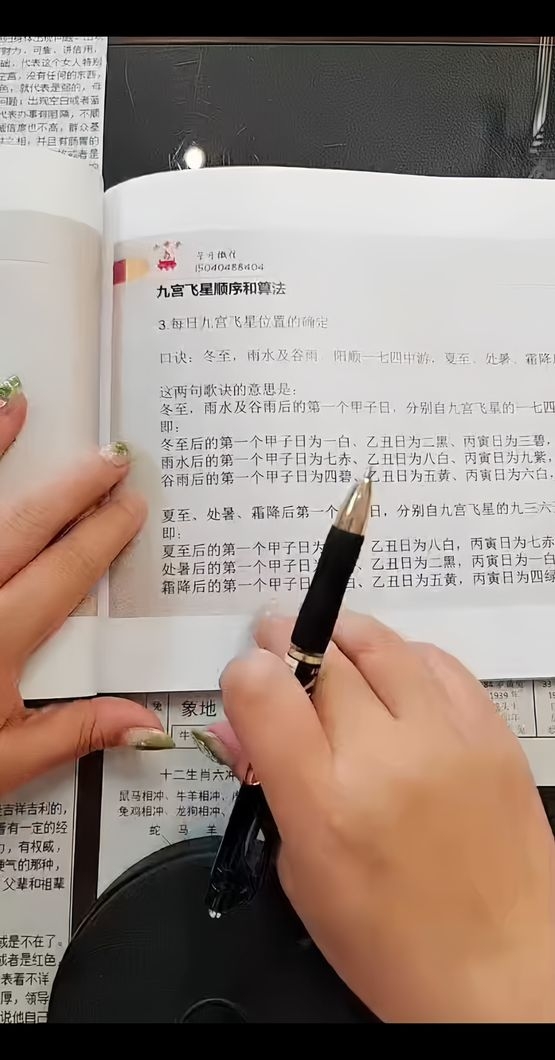 财力,可靠、讲信用,
础,代表这个女人特别
空宫,没有任何的东西,
色,就代表是弱的,母
问题;出现空白或者凿
代表办事有阻隔,不顺
诚信度也不高,群众基
学习微信
15040488404
九宫飞星顺序和算法
3.每日九宫飞星位置的确定
口诀:冬至,雨水及谷雨,阳顺一七四中游,夏至、处暑、霜降
这两句歌诀的意思是:
冬至,雨水及谷雨后的第一个甲子日,分别自九宫飞星的一七四
即:
冬至后的第一个甲子日为一白、乙丑日为二黑、丙寅日为三碧,
雨水后的第一个甲子日为七赤、乙丑日为八白、丙寅日为九紫,
谷雨后的第一个甲子日为四碧、乙丑日为五黄、丙寅日为六白,
夏至、处暑、霜降后第一个 日,分别自九宫飞星的九三六
即:
夏至后的第一个甲子日为 乙丑日为八白,丙寅日为七赤
处暑后的第一个甲子日 乙丑日为二黑,丙寅日为一白
霜降后的第一个甲子日 白、乙丑日为五黄,丙寅日为四绿
兔
象地
牛
1939年
十二生肖六冲
鼠马相冲、牛羊相冲、
兔鸡相冲、龙狗相冲、
蛇 马 羊
是吉祥吉利的,
看有一定的经
力,有权威,
硬气的那种,
父辈和祖辈
或是不在了。
或者是红色
表看不详
厚,领导
说他自己